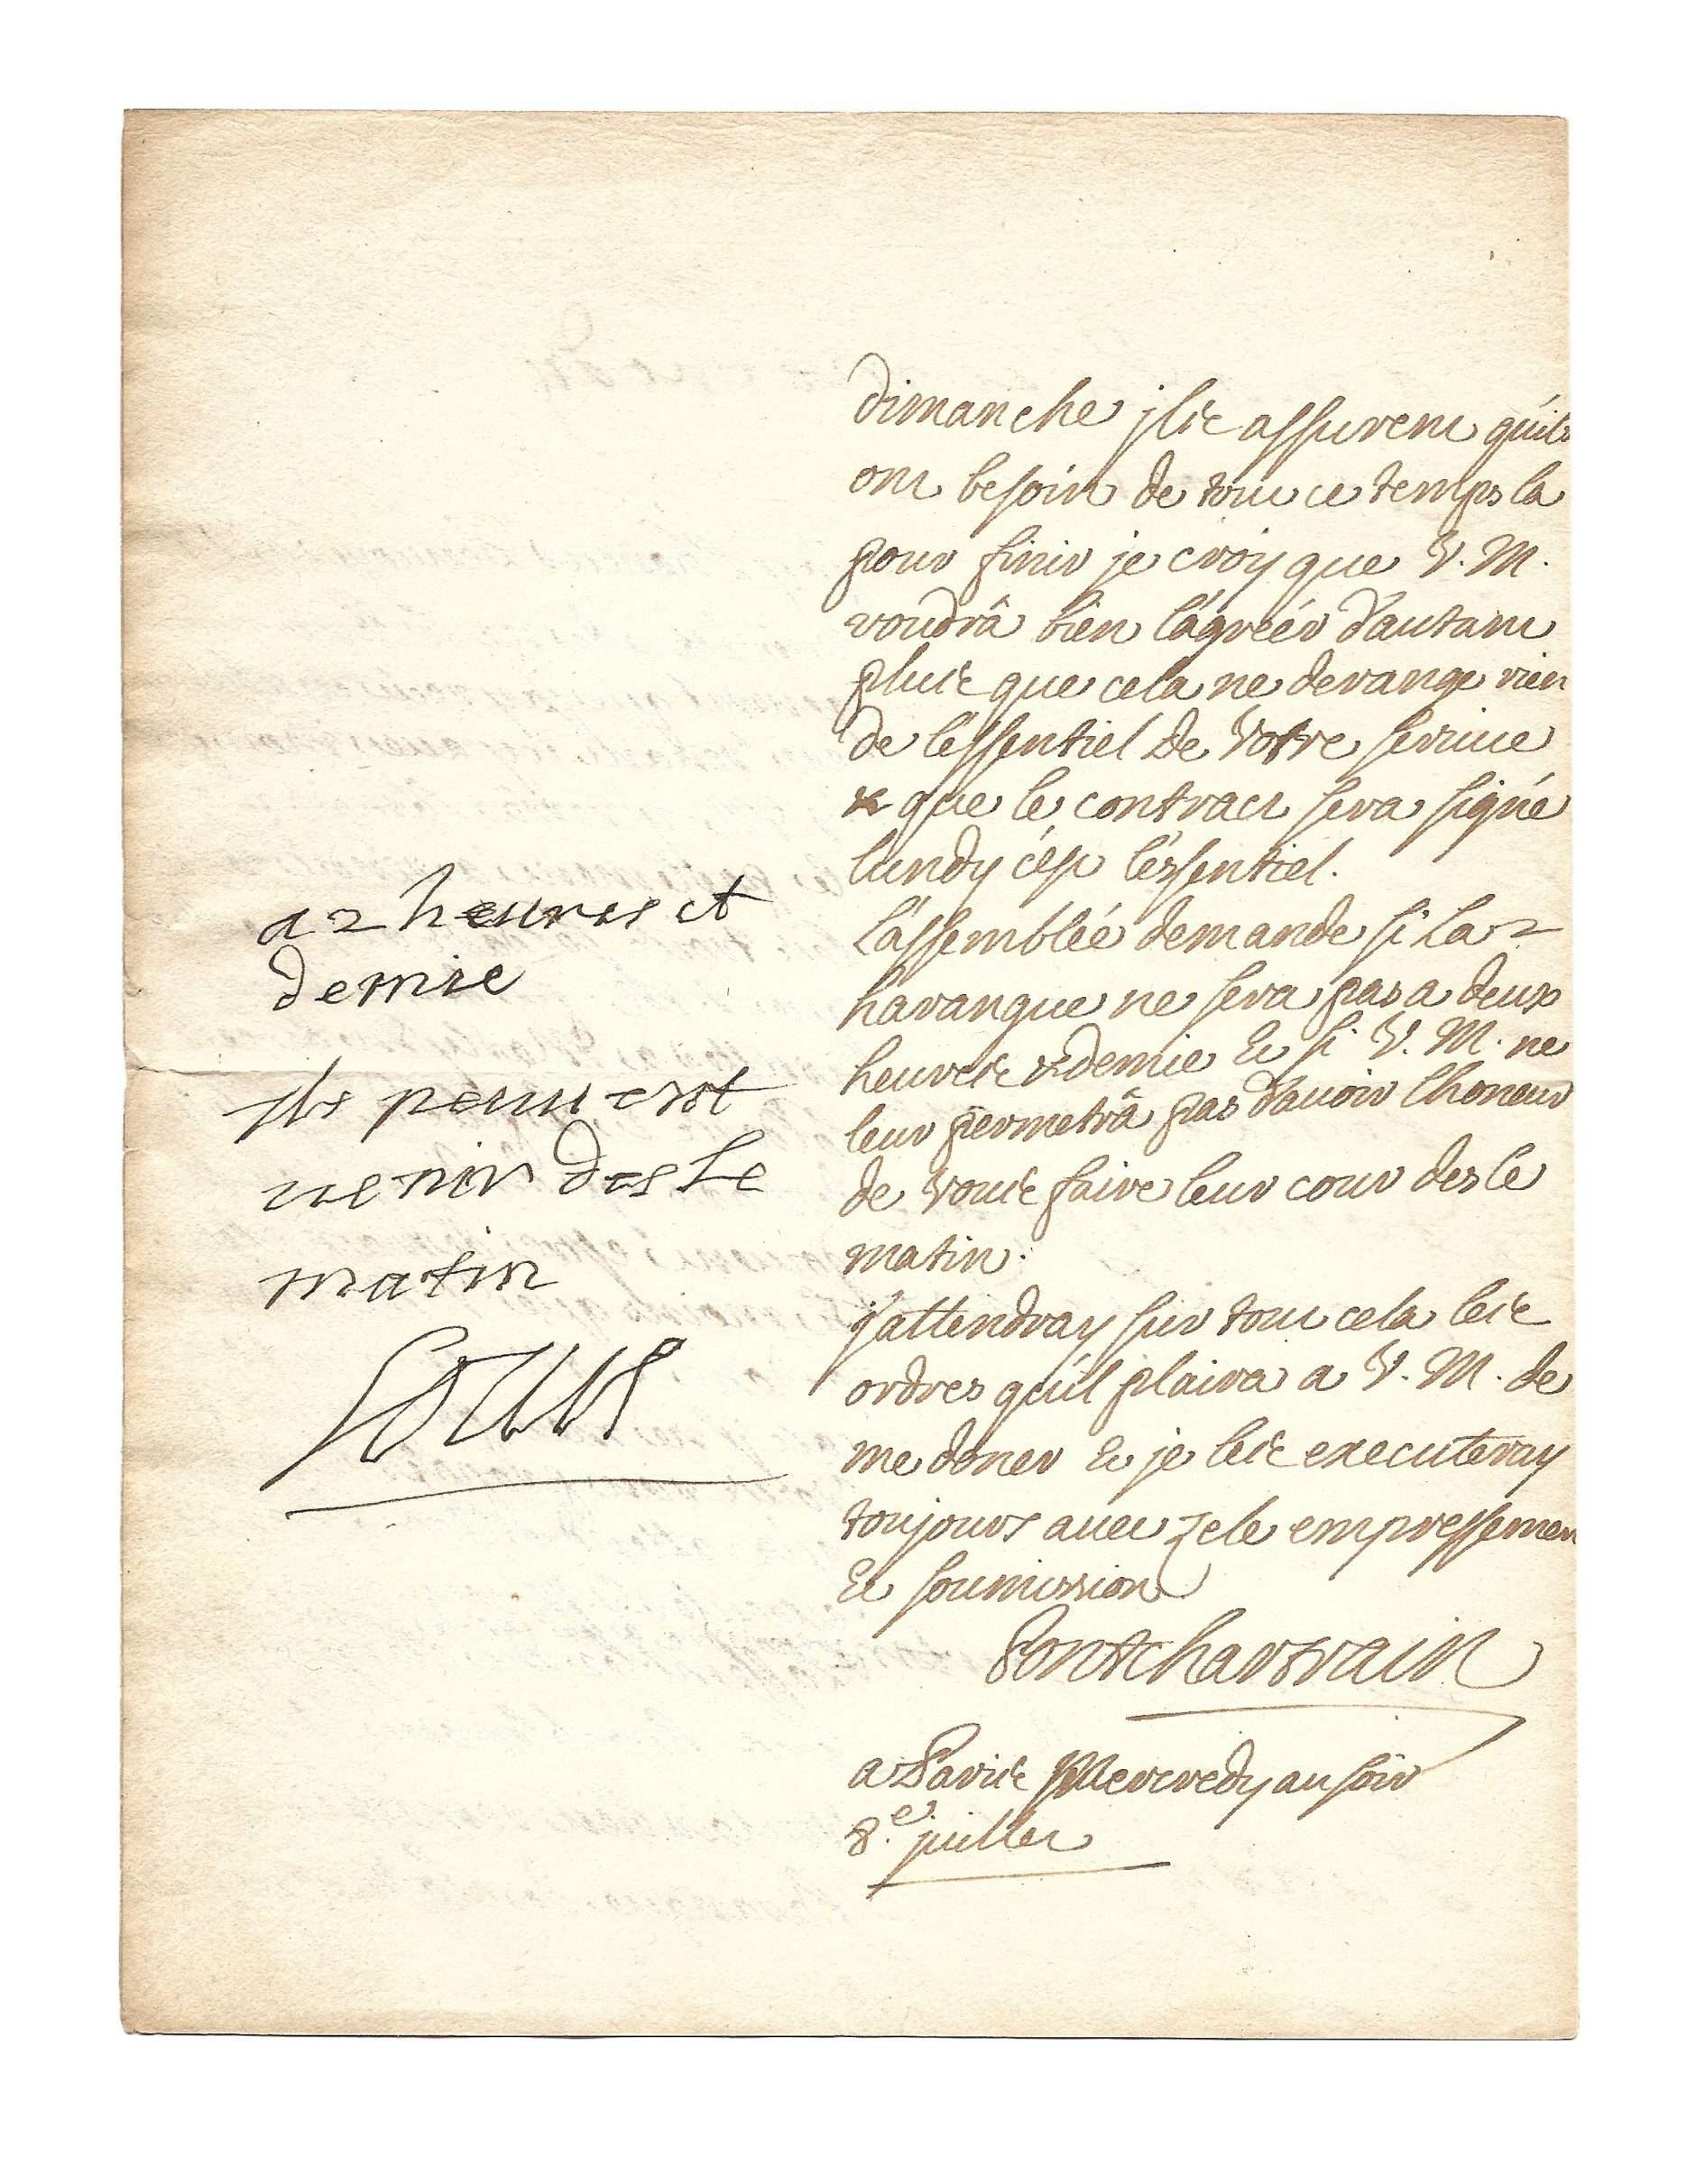 dimanche jls assurent qu'ils
ont besoin de tout ce temps la
pour finir je croy que V. M.
voudrâ bien l'agréér d'autant
plus que cela ne derange rien
de l'essentiel de Votre service
& que le contract sera signé
lundy c'est l'essentiel.
L'assemblée demande si La
harangue ne sera pas a deux
heures & demie Et si V. M. ne
leur permetrâ pas d'auoir lhoneur
de Vous faire leur cour des le
matin.
j'attendray sur tout cela les
ordres qu'il plaira a V. M. de
me doner Et je les executeray
toujours auec zele empressement
Et soumission
Pontchartrain
a Paris Mercredy au soir
8.e juillet
a 2 heures et
demie
jls peuuent
uenir des Le
matin
Louis